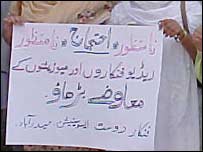 نامنظور * احتجاج * نامنظور
ریڈیو فنکاروں اور میوزیشنوں کے
معاوضے بڑھاؤ۔
فنکار دوست ایسوسی ایشن حیدرآباد